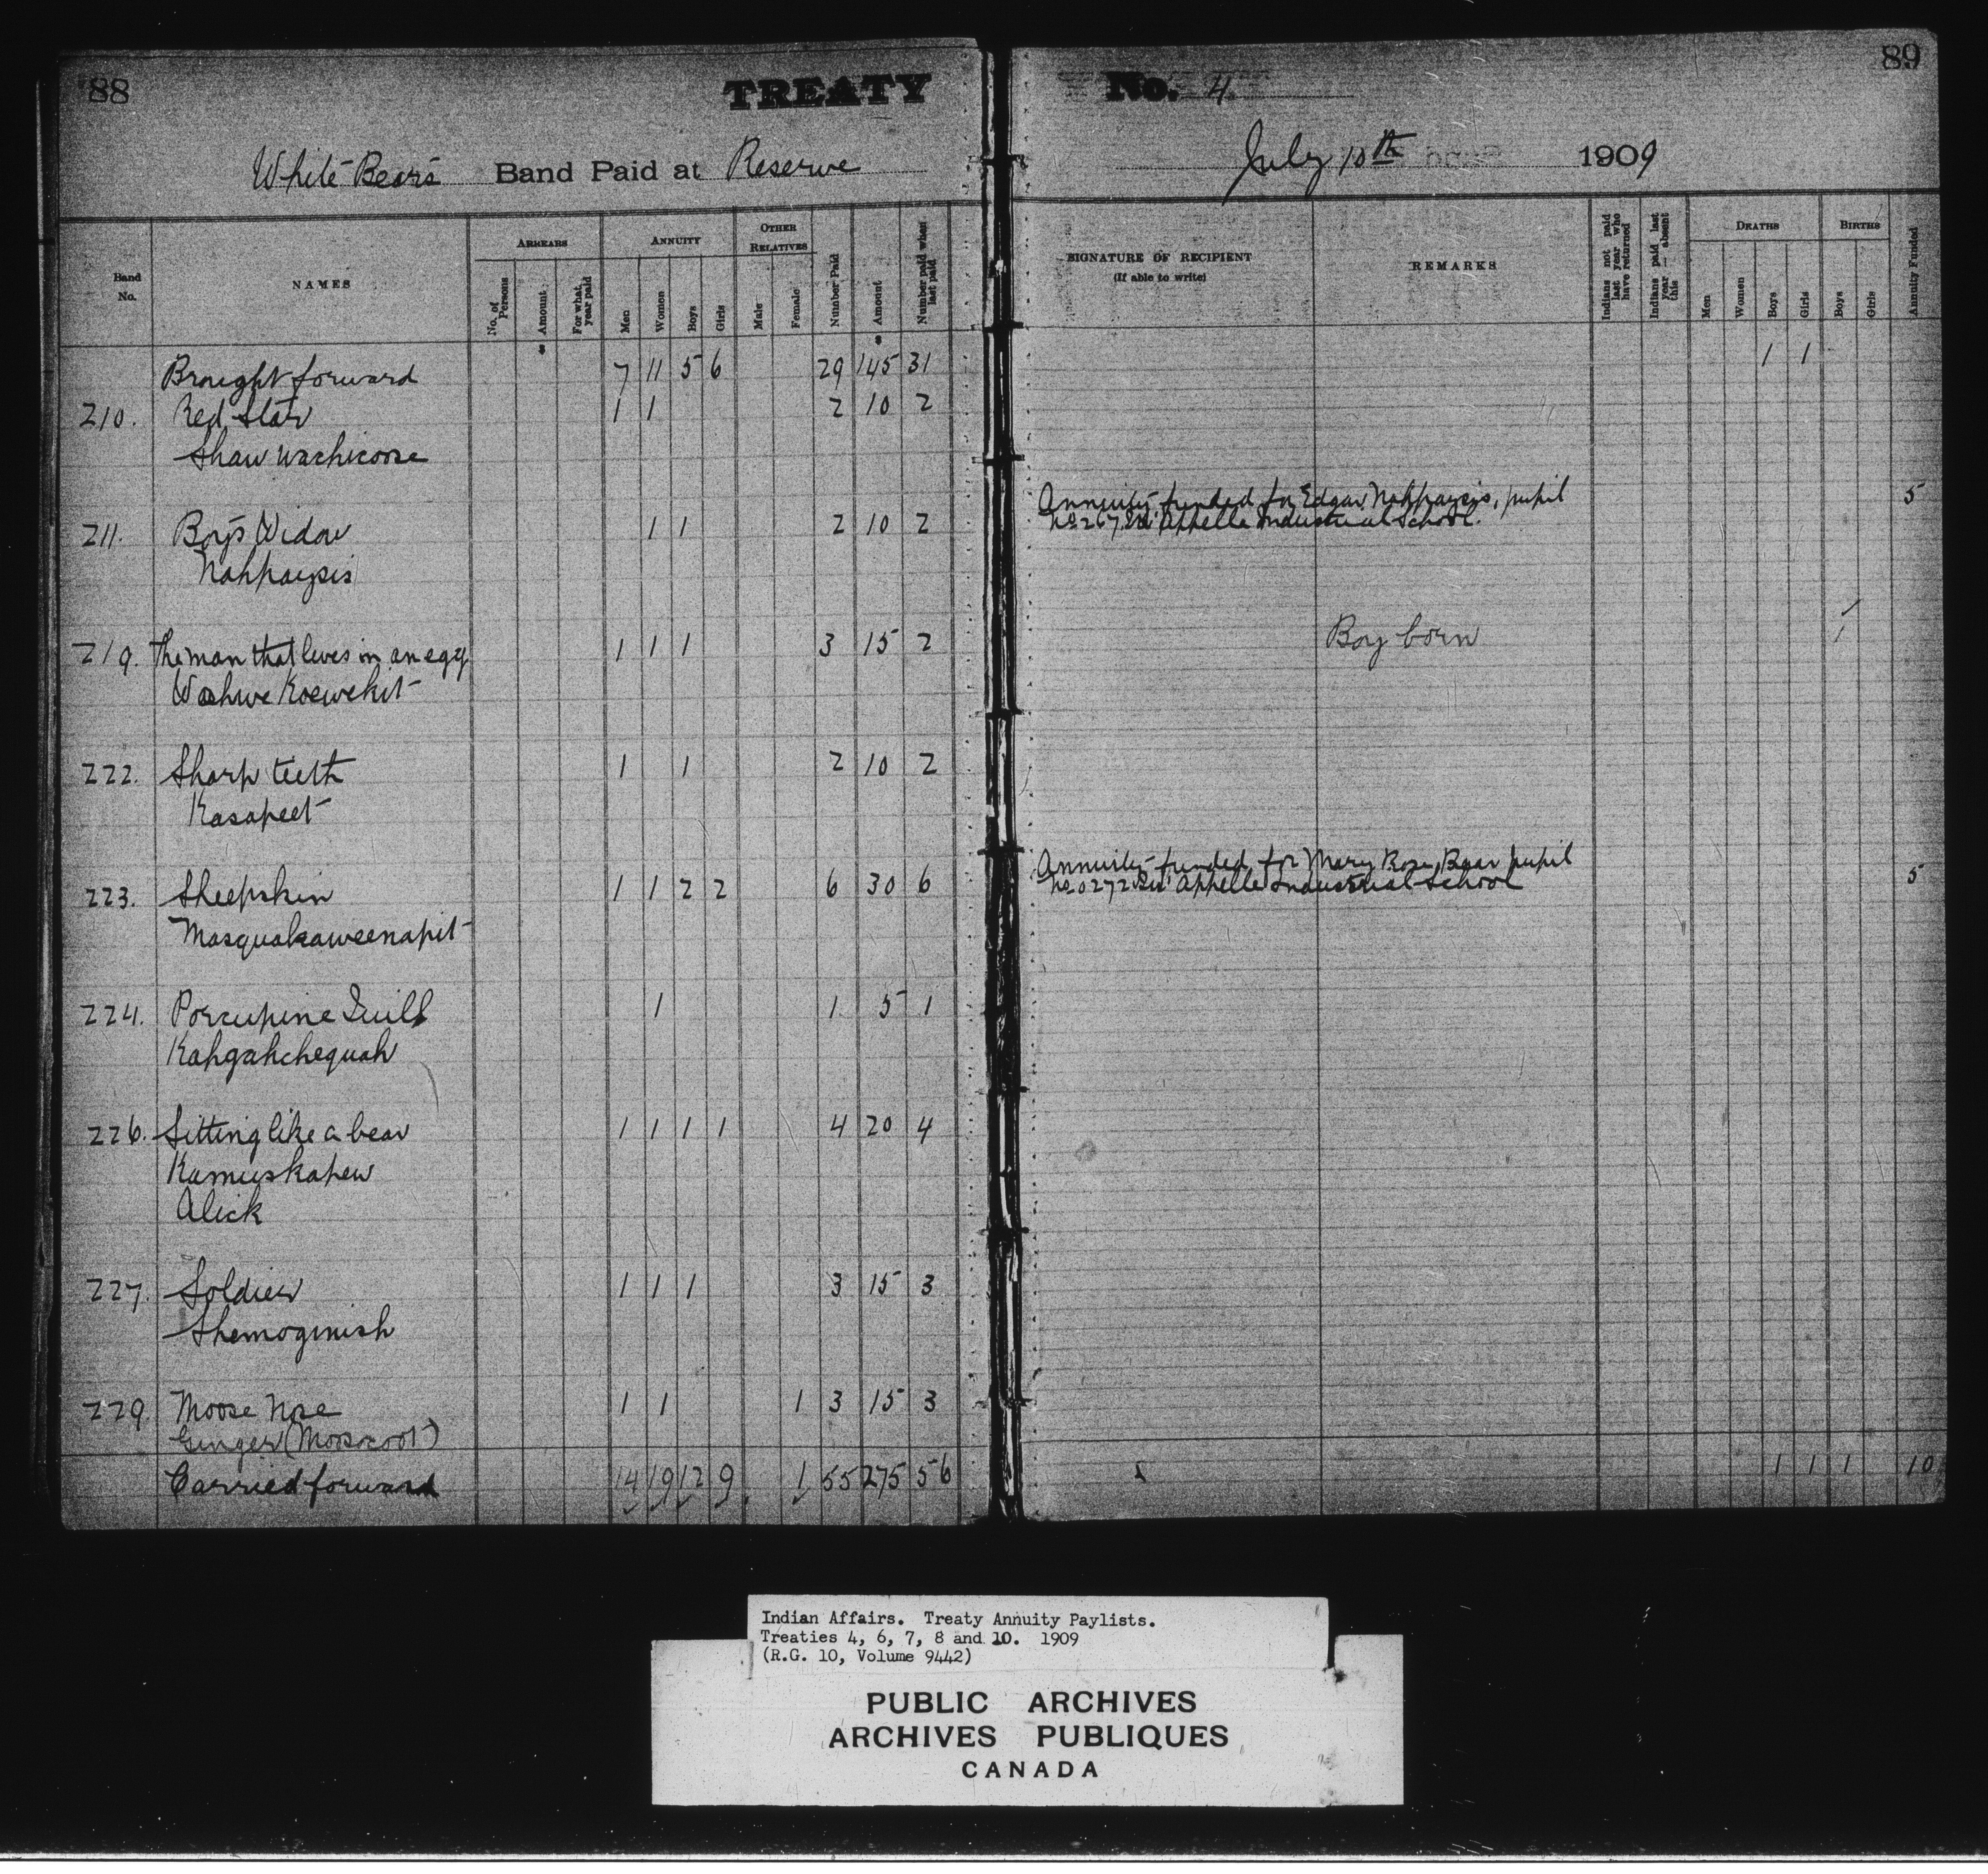 88
TREATY No. 4.
89
White Bear's Band Paid at Reserve July 10th 1909
Band No.
NAMES
ARREARS
No. of Persons
Amount
For what year paid
ANNUITY
Men
Women
Boys
Girls
OTHER RELATIVES
Male
Female
Number Paid
Amount
Number paid when last paid
SIGNATURE OF RECIPIENT
(If able to write)
REMARKS
Indians not paid last year who have returned
Indians paid last year — absent this
DEATHS
Men
Women
Boys
Girls
BIRTHS
Boys
Girls
Annuity Funded
$ $
Brought forward 7 11 5 6 29 145 31 1 1
210. Red Star 1 1 2 10 2
Shaw wachicoose
Annuity funded for Edgar Nahpaysis, pupil 5
No 267 Qu'Appelle Industrial School.
211. Boy's Widow 1 1 2 10 2
Nahpaysis
219. The man that lives in an egg 1 1 1 3 15 2 Boy born 1
Wahwe Koewekit
222. Sharp teeth 1 1 2 10 2
Kasapeet
Annuity funded for Mary Rose Bear pupil
No 0272 Qu'Appelle Industrial School 5
223. Sheepskin 1 1 2 2 6 30 6
Masquakaweenapit
224. Porcupine Quill 1 1 5 1
Kahgahchequah
226. Sitting like a bear 1 1 1 1 4 20 4
Kamuskapew
Alick
227. Soldier 1 1 1 3 15 3
Shemoginish
229. Moose Nose 1 1 1 3 15 3
Ginger (Moosocoot)
Carried forward 14 19 12 9 1 55 275 56 1 1 1 10
Indian Affairs. Treaty Annuity Paylists.
Treaties 4, 6, 7, 8 and 10. 1909
(R.G. 10, Volume 9442)
PUBLIC ARCHIVES
ARCHIVES PUBLIQUES
CANADA